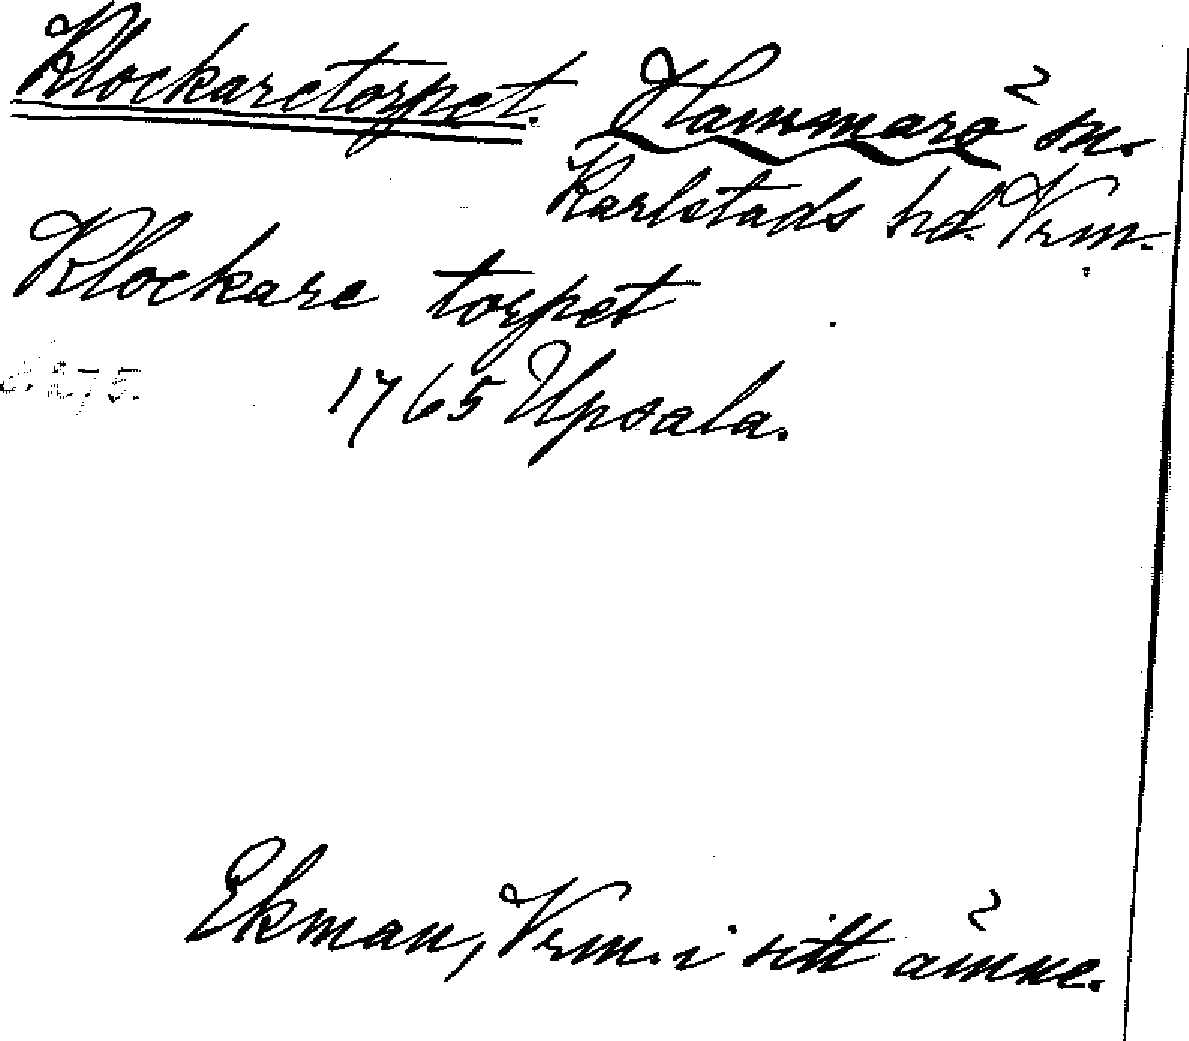 Klockaretorpet. Hammarö sn.
Karlstads hd. Vrm.
Klockare torpet
1765 Upsala.
Ekman, Vrm. i sitt ämne.